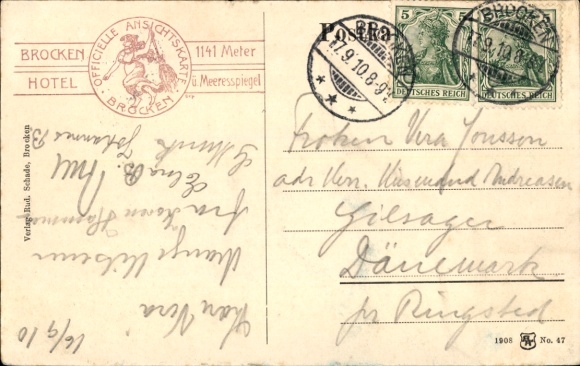 BROCKEN
HOTEL
OFFICIELLE ANSICHTSKARTE
BROCKEN
1141 Meter
ü. Meeresspiegel
Postka
BROCKEN
17.9.10.8-9V
5 5
DEUTSCHES REICH
BROCKEN
17.9.10.8
DEUTSCHES REICH
Verlag Rud. Schade, Brocken
16/9 10
Kær Vera
Mange Hilsener
fra
Johannes B
Frøken Vera Jonsson
adr Hrr. Andreasen
Gilsager
Dänemark
pr Ringsted
1908 No. 47